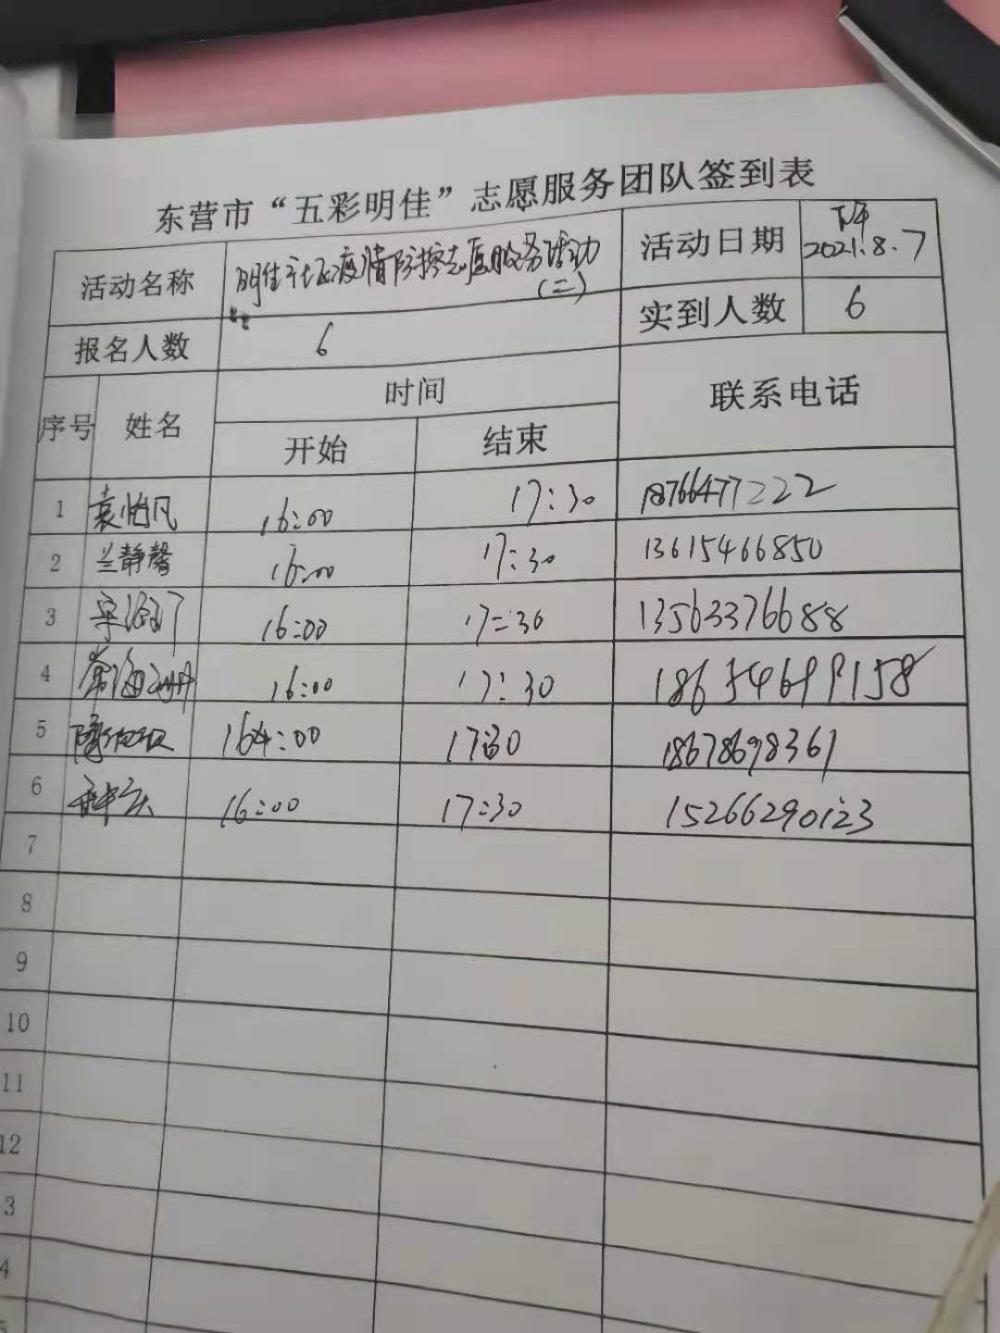 东营市“五彩明佳”志愿服务团队签到表
活动名称 明佳社区疫情防控志愿服务活动(二) 活动日期 下午 2021.8.7
报名人数 6 实到人数 6
序号 姓名 时间 联系电话
开始 结束
1 袁怡凡 16:00 17:30 18766477222
2 兰静馨 16:00 17:30 13615466850
3 16:00 17:30 13563376688
4 16:00 17:30 18654699158
5 16:00 17:30 18678698361
6 16:00 17:30 15266290123
7
8
9
10
11
12
3
4
5